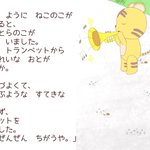 ように ねこのこが
ると、
とらのこが
いました。
トランペットから
れいな おとが
か。
づよくて、
ぶような すてきな
ず、
ットを
した。
ぜんぜん ちがうや。」